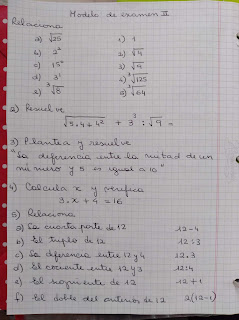 Modelo de examen II
Relaciona
a) √25 1) 1
b) 2² 2) √4
c) 15⁰ 3) √9
d) 3¹ 4) ³√125
e) ³√8 5) ³√64
2) Resuelve
√5.4+4² + 3³ : √9 =
3) Plantea y resuelve
"La diferencia entre la mitad de un
número y 5 es igual a 10"
4) Calcula x y verifica
3.x + 4 = 16
5) Relaciona
a) La cuarta parte de 12 12-4
b) El triplo de 12 12:3
c) La diferencia entre 12 y 4 12.3
d) El cociente entre 12 y 3 12:4
e) El siguiente de 12 12+1
f) El doble del anterior de 12 2(12-1)